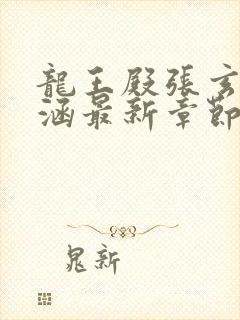 龍王殿張玄
涵最新章節
晁新